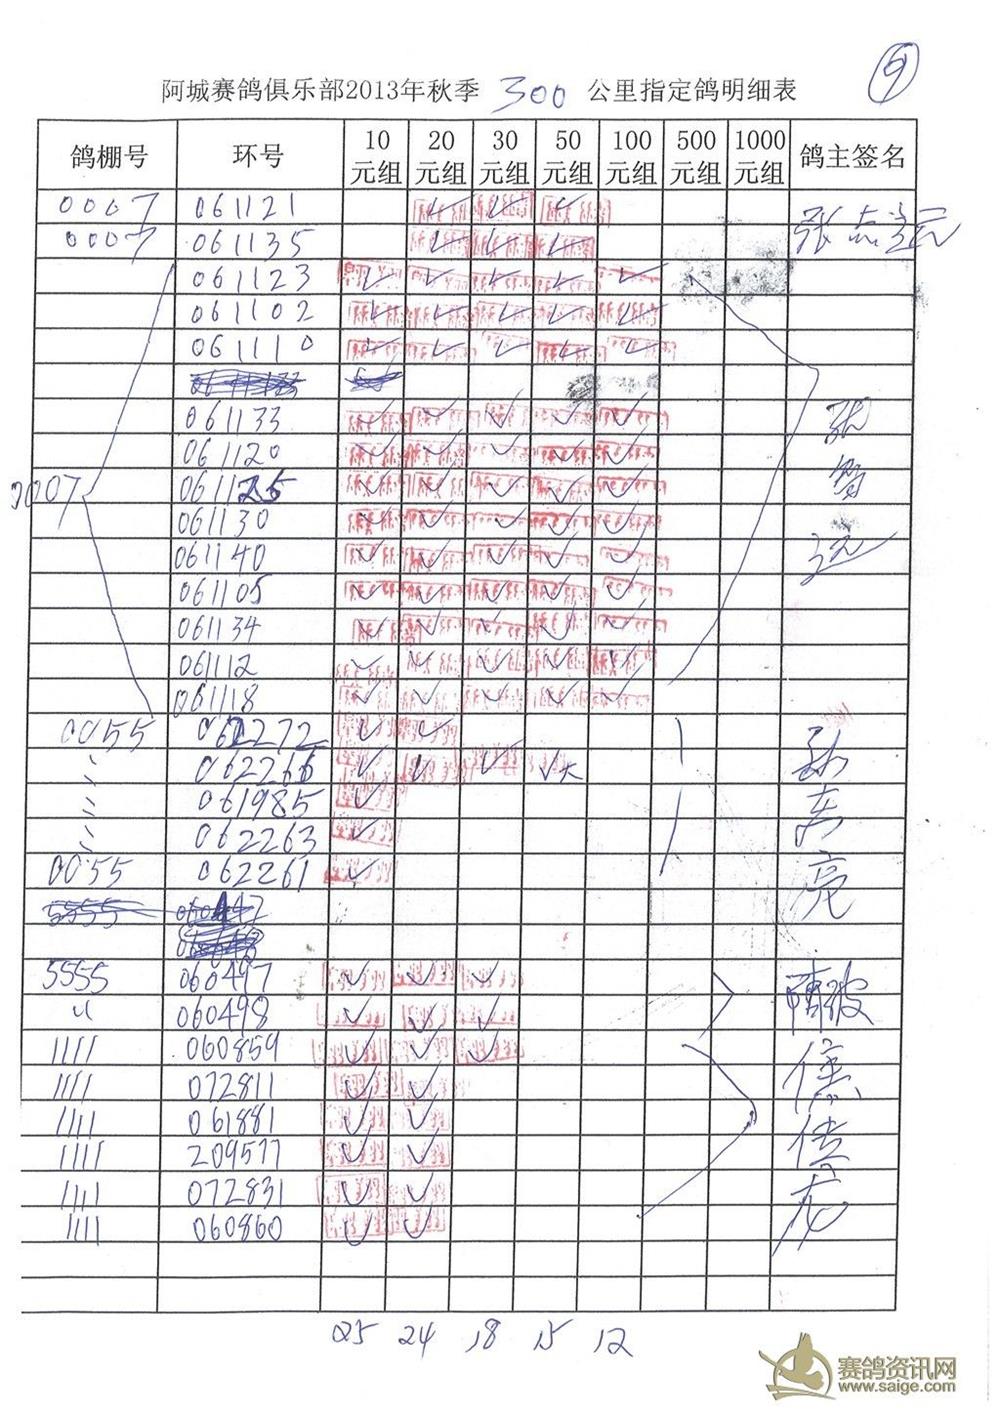 ⑨
阿城赛鸽俱乐部2013年秋季 300 公里指定鸽明细表
鸽棚号 环号 10元组 20元组 30元组 50元组 100元组 500元组 1000元组 鸽主签名
0007 061121 ✓ ✓ ✓
0007 061135 ✓ ✓ ✓
061123 ✓ ✓ ✓ ✓ ✓
061102 ✓ ✓ ✓ ✓ ✓
061110 ✓ ✓ ✓ ✓ ✓
061133 ✓ ✓ ✓ ✓ ✓
061120 ✓ ✓ ✓ ✓ ✓
0007 061125 ✓ ✓ ✓ ✓ ✓
061130 ✓ ✓ ✓ ✓ ✓
061140 ✓ ✓ ✓ ✓ ✓
061105 ✓ ✓ ✓ ✓ ✓
061134 ✓ ✓ ✓ ✓ ✓
061112 ✓ ✓ ✓ ✓ ✓
061118 ✓ ✓ ✓ ✓ ✓
0055 062272 ✓ ✓
062266 ✓ ✓ ✓ ✓
061985 ✓
062263 ✓
0055 062261 ✓
5555 060497 ✓ ✓ ✓
〃 060498 ✓ ✓ ✓
1111 060859 ✓ ✓ ✓
1111 072811 ✓ ✓
1111 061881 ✓ ✓
1111 209577 ✓ ✓
1111 072831 ✓ ✓
1111 060860 ✓ ✓
25 24 18 15 12
赛鸽资讯网
www.saige.com